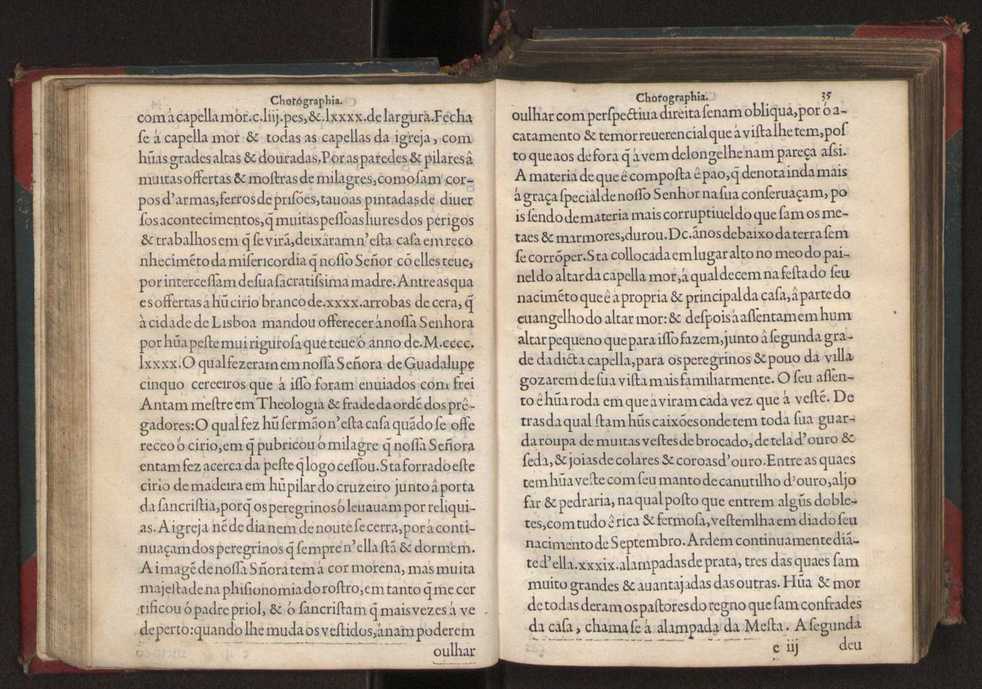 Chorographia.
com à capella mòr.c.liij.pes,&.lxxxx.de largura.Fecha
se á capella mor & todas as capellas da igreja, com
hũas grades altas & douradas. Por as paredes & pilares â
muitas offertas & mostras de milagres, como sam cor-
pos d'armas, ferros de prisões, tauoas pintadas de diuer
sos acontecimentos, q̃ muitas pessoas liures dos perigos
& trabalhos em q̃ se virã, deixáram n'esta casa em reco
nhecimẽto da misericordia q̃ nosso Señor cõ elles teue,
por intercessam de sua sacratissima madre. Antre as qua
es offertas à hũ cirio branco de.xxxx.arrobas de cera, q̃
à cidade de Lisboa mandou offerecer à nossa Senhora
por hũa peste mui rigurosa que teue ó anno de.M.cccc.
lxxxx.O qual fezeram em nossa Señora de Guadalupe
cinquo cereeiros que à isso foram enuiados com frei
Antam mestre em Theologia & frade da ordẽ dos prê-
gadores: O qual fez hũ sermão n'esta casa quãdo se offe
receo ó cirio, em q̃ pubricou ó milagre q̃ nossa Señora
entam fez acerca da peste q̃ logo cessou. Sta forrado este
cirio de madeira em hũ pilar do cruzeiro junto â porta
da sancristia, porq̃ os peregrinos ó leuauam por reliqui-
as. A igreja nẽ de dia nem de noute se cerra, por á conti-
nuaçam dos peregrinos q̃ sempre n'ella stã & dormem.
A imagẽ de nossa Sñora tem á cor morena, mas muita
majestade na phisionomia do rostro, em tanto q̃ me cer
tificou ó padre priol, & ó sancristam q̃ mais vezes á ve
de perto: quando lhe muda os vestidos, á nam poderem
oulhar
Chorographia.
35
oulhar com perspectiua direita senam obliqua, por ó a-
catamento & temor reuerencial que à vista lhe tem, pos
to que aos de fora q̃ á vem de longe lhe nam pareça assi.
A materia de que ê composta ê pao, q̃ denota inda mais
á graça special de nosso Senhor na sua conseruaçam, po
is sendo de materia mais corruptiuel do que sam os me-
taes & marmores, durou. Dc. ãnos debaixo da terra sem
se corrõper. Sta collocada em lugar alto no meo do pai-
nel do altar da capella mor, á qual decem na festa do seu
nacimẽto que ê a propria & principal da casa, â parte do
euangelho do altar mor: & despois á assentam em hum
altar pequeno que para isso fazem, junto â segunda gra-
de da dicta capella, para os peregrinos & pouo da villa
gozarem de sua vista mais familiarmente. O seu assen-
to ê hũa roda em que á viram cada vez que á vestẽ. De
tras da qual stam hũs caixões onde tem toda sua guar-
da roupa de muitas vestes de brocado, de tela d'ouro &
seda, & joias de colares & coroas d'ouro. Entre as quaes
tem hũa veste com seu manto de canutilho d'ouro, aljo
far & pedraria, na qual posto que entrem algũs doble-
tes, com tudo ê rica & fermosa, vestemlha em dia do seu
nacimento de Septembro. Ardem continuamente diã-
te d'ella.xxxix.alampadas de prata, tres das quaes sam
muito grandes & auantajadas das outras. Hũa & mor
de todas deram os pastores do regno que sam confrades
da casa, chamase à alampada da Mesta. A segunda
e iij
deu